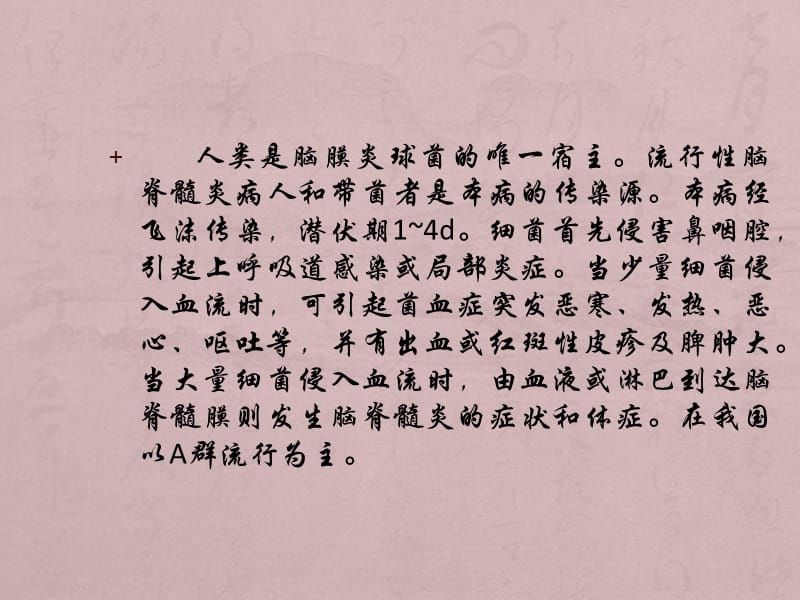 + 人类是脑膜炎球菌的唯一宿主。流行性脑
脊髓炎病人和带菌者是本病的传染源。本病经
飞沫传染，潜伏期1~4d。细菌首先侵害鼻咽腔，
引起上呼吸道感染或局部炎症。当少量细菌侵
入血流时，可引起菌血症突发恶寒、发热、恶
心、呕吐等，并有出血或红斑性皮疹及脾肿大。
当大量细菌侵入血流时，由血液或淋巴到达脑
脊髓膜则发生脑脊髓炎的症状和体症。在我国
以A群流行为主。